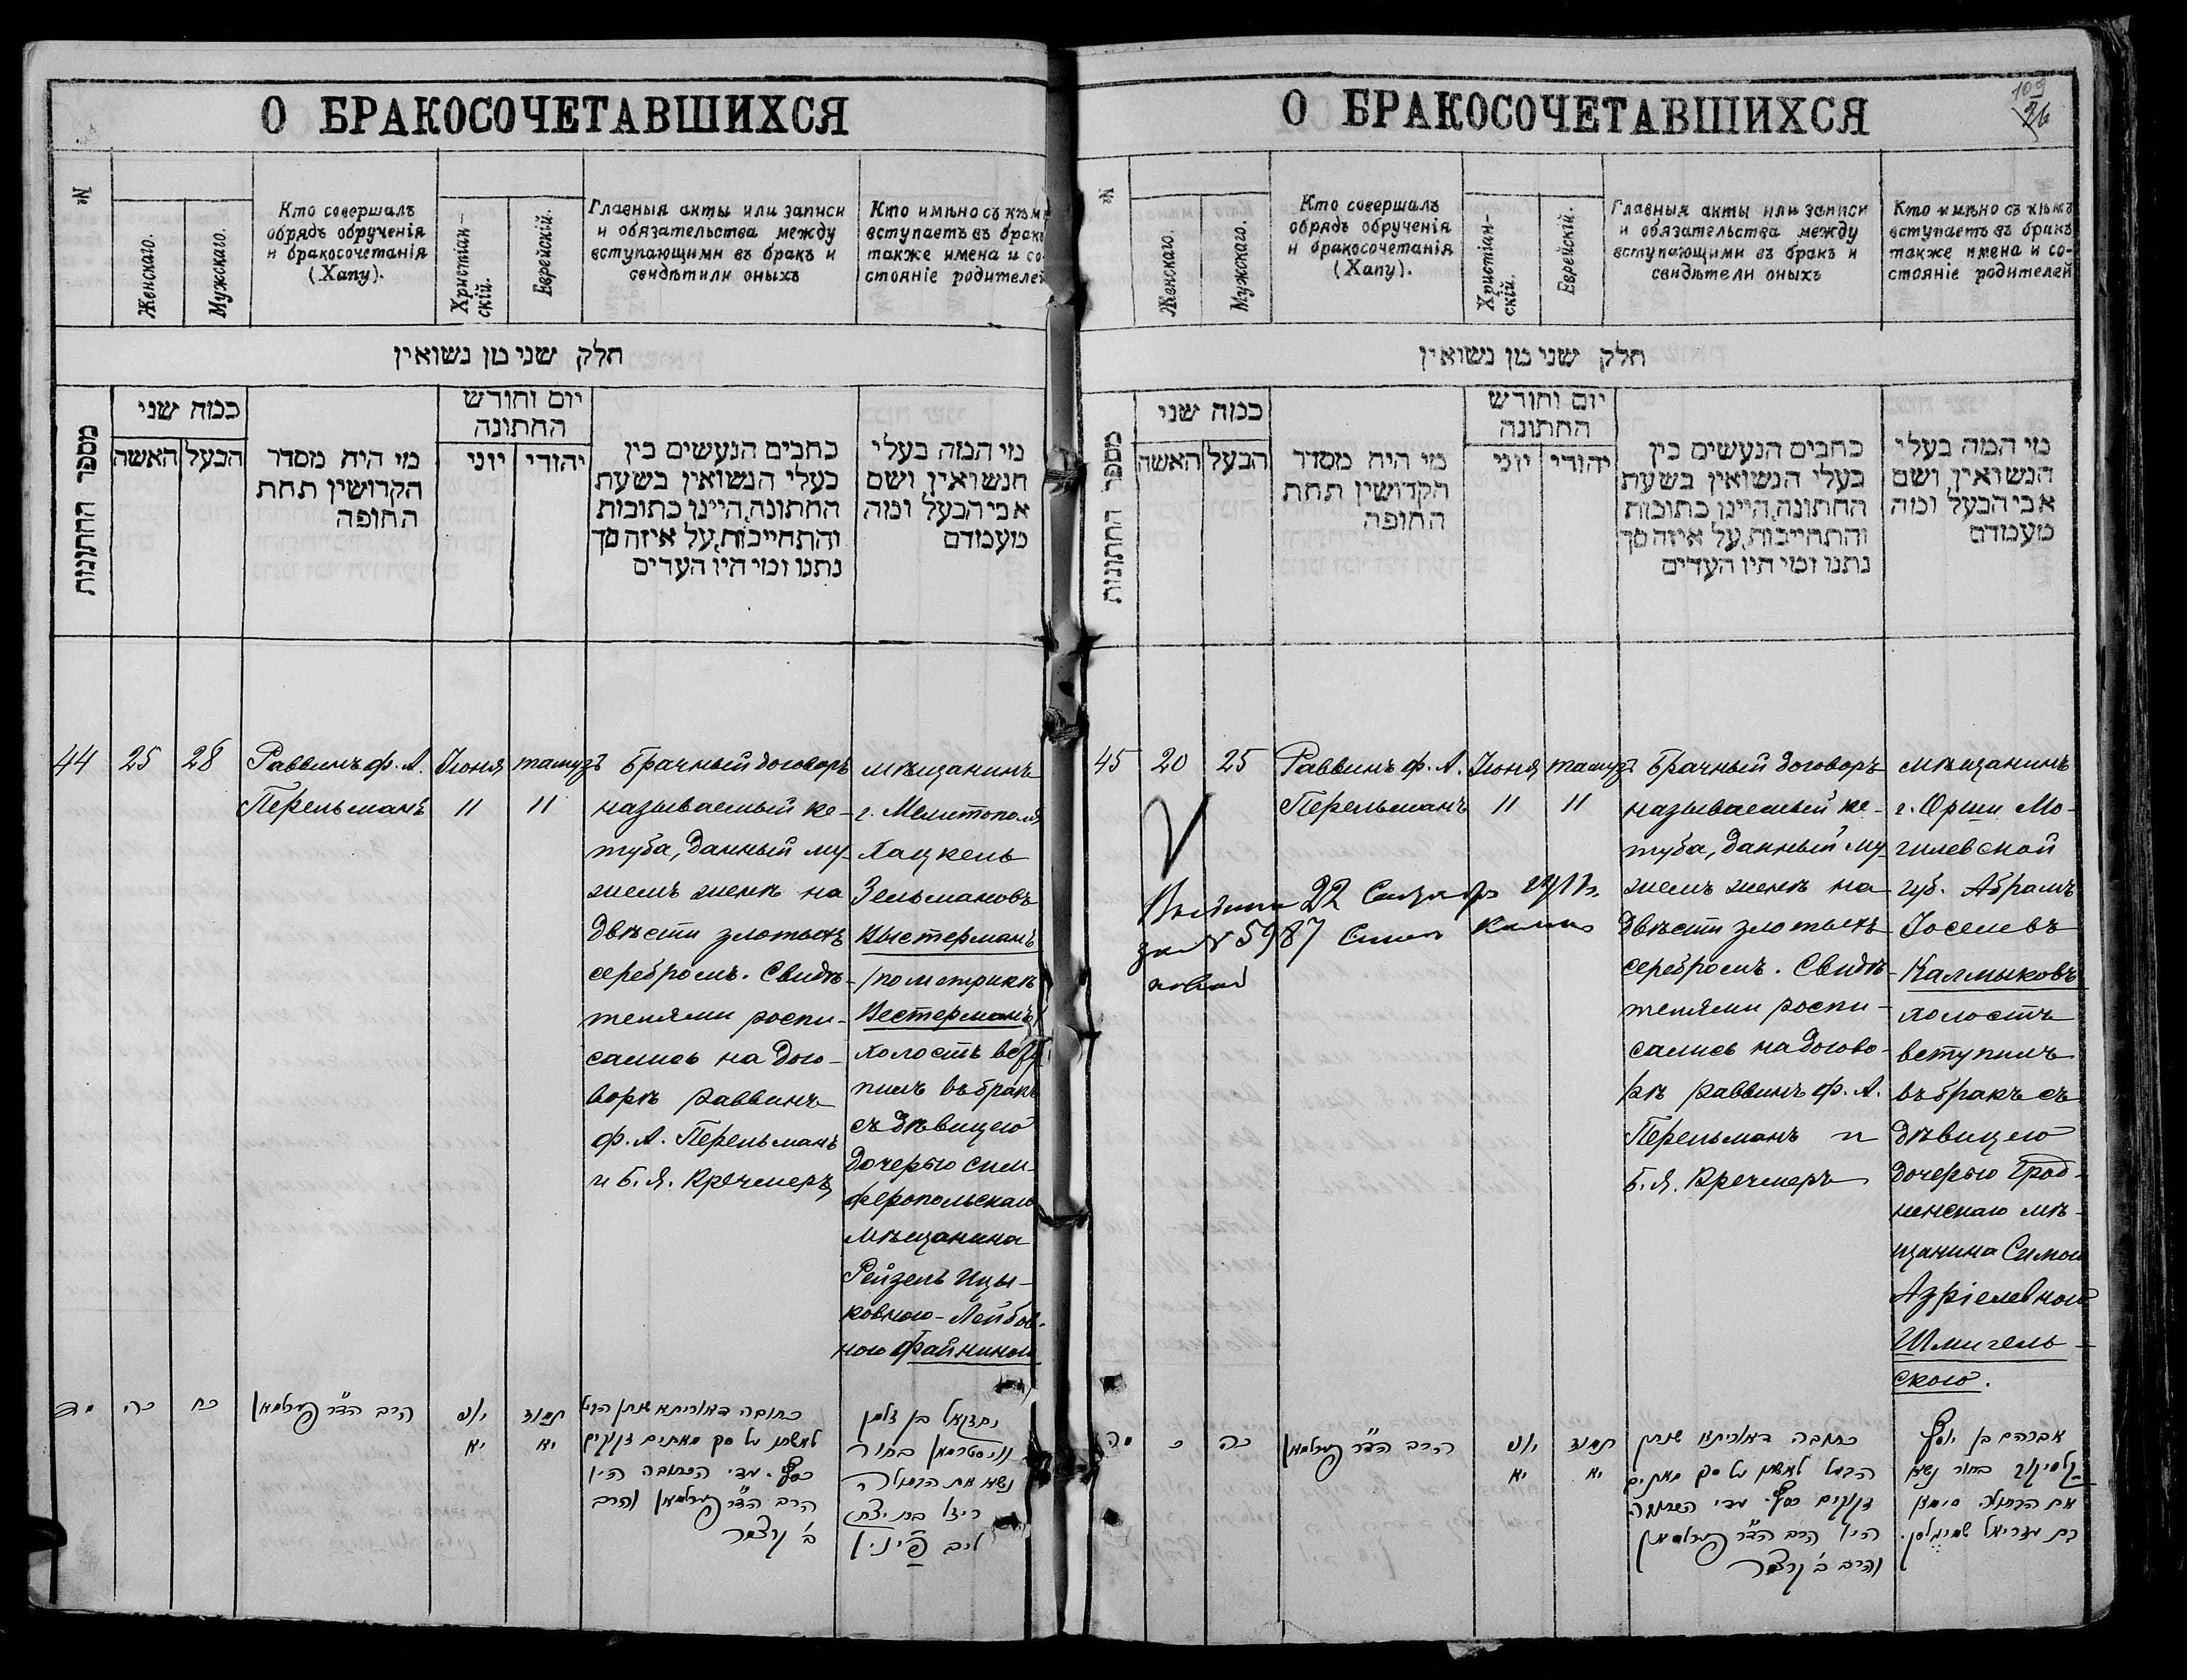 О БРАКОСОЧЕТАВШИХСЯ
№
Женскаго.
Мужскаго.
Кто совершалъ
обрядъ обрученія
и бракосочетанія
(Хапу).
Христіан-
скій.
Еврейскій.
Главныя акты или записи
и обязательства между
вступающими въ бракъ и
свидѣтили оныхъ
Кто имѣно съ кѣмъ
вступаетъ въ бракъ
также имена и со-
стояніе родителей
חלק שני מן נשואין
מספר החתונות
כמה שני
האשה
הבעל
מי היה מסדר
הקדושין תחת
החופה
יום וחודש
החתונה
יוני
יהודי
כתבים הנעשים בין
בעלי הנשואין בשעת
החתונה, היינו כתובות
והתחייבות, על איזה סך
נתנו ומי היו העדים
מי המה בעלי
הנשואין ושם
אבי הבעל ומה
מעמדם
44
25
28
Раввинъ Ф. А.
Перельманъ
Іюня
11
тамузъ
11
Брачный договоръ
называемый ке-
туба, данный му-
жемъ женѣ на
двѣсти злотыхъ
серебромъ. Свидѣ-
телями роспи-
сались на дого-
ворѣ раввинъ
Ф. А. Перельманъ
и Б. Я. Кречмеръ
мѣщанинъ
г. Мелитополя
Хацкель
Зельмановъ
Выстерманъ
/по метрикѣ
Вестерманъ/
холостъ всту-
пилъ въ бракъ
съ дѣвицею
дочерью сим-
феропольскаго
мѣщанина
Рейзель Ицы-
ковною-Лейбов-
ною Файниною
מד
כה
כח
הרב הד״ר פערלמאן
יוני
יא
תמוז
יא
כתובה דאוריתא שנתן הבעל
לאשתו על סך מאתים זקוקים
כסף. עדי הכתובה היו
הרב הד״ר פערלמאן והרב
ב׳ קרצמר
יחזקאל בן זלמן
וויסטרמאן בחור
נשא את הבתולה
רייזל בת יצחק
ליב פיינין
О БРАКОСОЧЕТАВШИХСЯ
109
26
№
Женскаго.
Мужскаго.
Кто совершалъ
обрядъ обрученія
и бракосочетанія
(Хапу).
Христіан-
скій.
Еврейскій.
Главныя акты или записи
и обязательства между
вступающими въ бракъ и
свидѣтели оныхъ
Кто имѣно съ кѣмъ
вступаетъ въ бракъ
также имена и со-
стояніе родителей
חלק שני מן נשואין
מספר החתונות
כמה שני
האשה
הבעל
מי היה מסדר
הקדושין תחת
החופה
יום וחודש
החתונה
יוני
יהודי
כתבים הנעשים בין
בעלי הנשואין בשעת
החתונה, היינו כתובות
והתחייבות, על איזה סך
נתנו ומי היו העדים
מי המה בעלי
הנשואין, ושם
אבי הבעל ומה
מעמדם
45
20
25
Раввинъ Ф. А.
Перельманъ
Іюня
11
тамузъ
11
Брачный договоръ
называемый ке-
туба, данный му-
жемъ женѣ на
двѣсти злотыхъ
серебромъ. Свидѣ-
телями роспи-
сались на догово-
рѣ раввинъ Ф. А.
Перельманъ и
Б. Я. Кречмеръ
мѣщанинъ
г. Орши Мо-
гилевской
губ. Абрамъ
Іоселевъ
Калмыковъ
холостъ
вступилъ
въ бракъ съ
дѣвицею
дочерью Грод-
ненскаго мѣ-
щанина Симою
Азріелевною
Шмигель-
скою.
22
за № 5987
מה
כ
כה
הרב הד״ר פערלמאן
יוני
יא
תמוז
יא
כתובה דאוריתא שנתן
הבעל לאשתו על סך מאתים
זקוקים כסף. עדי הכתובה
היו הרב הד״ר פערלמאן
והרב ב׳ קרצמר
אברהם בן יוסף
קלמיקוב בחור נשא
את הבתולה סימא
בת עזריאל שמיגלסק.